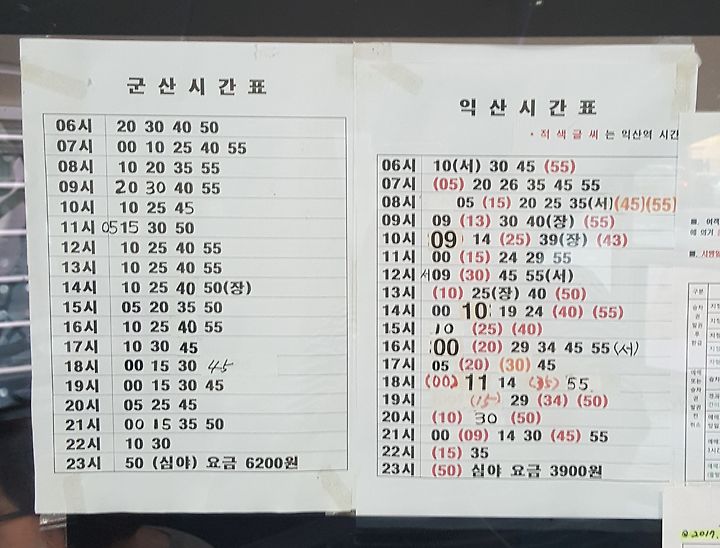 군산시간표
06시 20 30 40 50
07시 00 10 25 40 55
08시 10 20 35 55
09시 20 30 40 55
10시 10 25 45
11시 05 15 30 50
12시 10 25 40 55
13시 10 25 40 55
14시 10 25 40 50(장)
15시 05 20 35 50
16시 10 25 40 55
17시 10 30 45
18시 00 15 30 45
19시 00 15 30 45
20시 05 25 45
21시 00 15 35 50
22시 10 30
23시 50 (심야) 요금 6200원
익산시간표
* 적색글씨는 익산역 시간
06시 10(서) 30 45 (55)
07시 (05) 20 26 35 45 55
08시 05 (15) 20 25 35(서) (45)(55)
09시 09 (13) 30 40(장) (55)
10시 09 14 (25) 39(장) (43)
11시 00 (15) 24 29 55
12시 서09 (30) 45 55(서)
13시 (10) 25(장) 40 (50)
14시 00 10 19 24 (40) (55)
15시 10 (25) (40)
16시 00 (20) 29 34 45 55(서)
17시 05 (20) (30) 45
18시 (00) 11 14 (35) 55
19시 (15) 29 (34) (50)
20시 (10) 30 (50)
21시 00 (09) 14 30 (45) 55
22시 (15) 35
23시 (50) 심야 요금 3900원
■. 여객
에 의거
■. 시행일
구분
@2017.